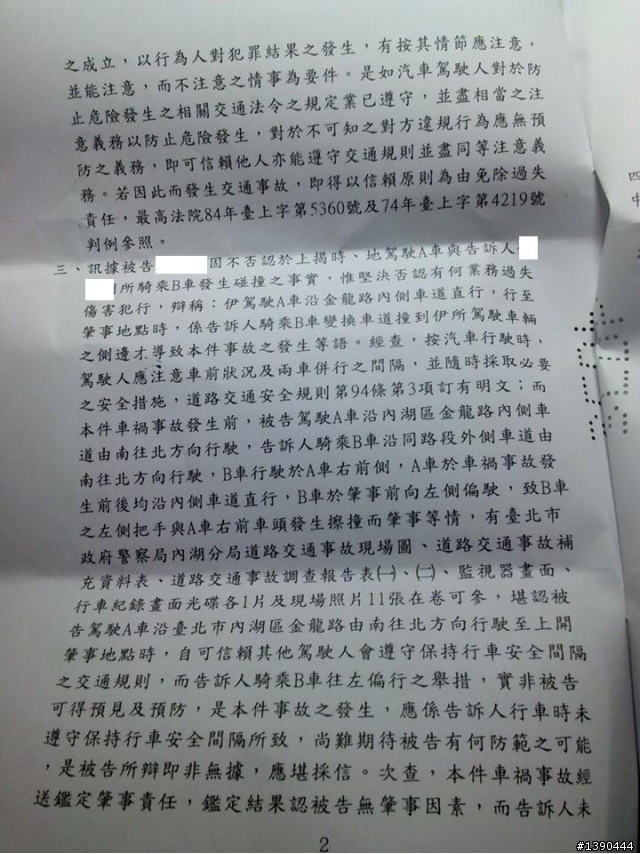 之成立，以行為人對犯罪結果之發生，有按其情節應注意，
並能注意，而不注意之情事為要件。是如汽車駕駛人對於防
止危險發生之相關交通法令之規定業已遵守，並盡相當之注
意義務以防止危險發生，對於不可知之對方違規行為應無預
防之義務，即可信賴他人亦能遵守交通規則並盡同等注意義
務。若因此而發生交通事故，即得以信賴原則為由免除過失
責任，最高法院84年臺上字第5360號及74年臺上字第4219號
判例參照。
三、訊據被告 固不否認於上揭時、地駕駛A車與告訴人
所騎乘B車發生碰撞之事實，惟堅決否認有何業務過失
傷害犯行，辯稱：伊駕駛A車沿金龍路內側車道直行，行至
肇事地點時，係告訴人騎乘B車變換車道撞到伊所駕駛車輛
之側邊才導致本件事故之發生等語。經查，按汽車行駛時，
駕駛人應注意車前狀況及兩車併行之間隔，並隨時採取必要
之安全措施，道路交通安全規則第94條第3項訂有明文；而
本件車禍事故發生前，被告駕駛A車沿內湖區金龍路內側車
道由南往北方向行駛，告訴人騎乘B車沿同路段外側車道由
南往北方向行駛，B車行駛於A車右前側，A車於車禍事故發
生前後均沿內側車道直行，B車於肇事前向左側偏駛，致B車
之左側把手與A車右前車頭發生擦撞而肇事等情，有臺北市
政府警察局內湖分局道路交通事故現場圖、道路交通事故補
充資料表、道路交通事故調查報告表㈠、㈡、監視器畫面、
行車紀錄畫面光碟各1片及現場照片11張在卷可參，堪認被
告駕駛A車沿臺北市內湖區金龍路由南往北方向行駛至上開
肇事地點時，自可信賴其他駕駛人會遵守保持行車安全間隔
之交通規則，而告訴人騎乘B車往左偏行之舉措，實非被告
可得預見及預防，是本件事故之發生，應係告訴人行車時未
遵守保持行車安全間隔所致，尚難期待被告有何防範之可能
，是被告所辯即非無據，應堪採信。次查，本件車禍事故經
送鑑定肇事責任，鑑定結果認被告無肇事因素，而告訴人未
2
四
中
#1390444